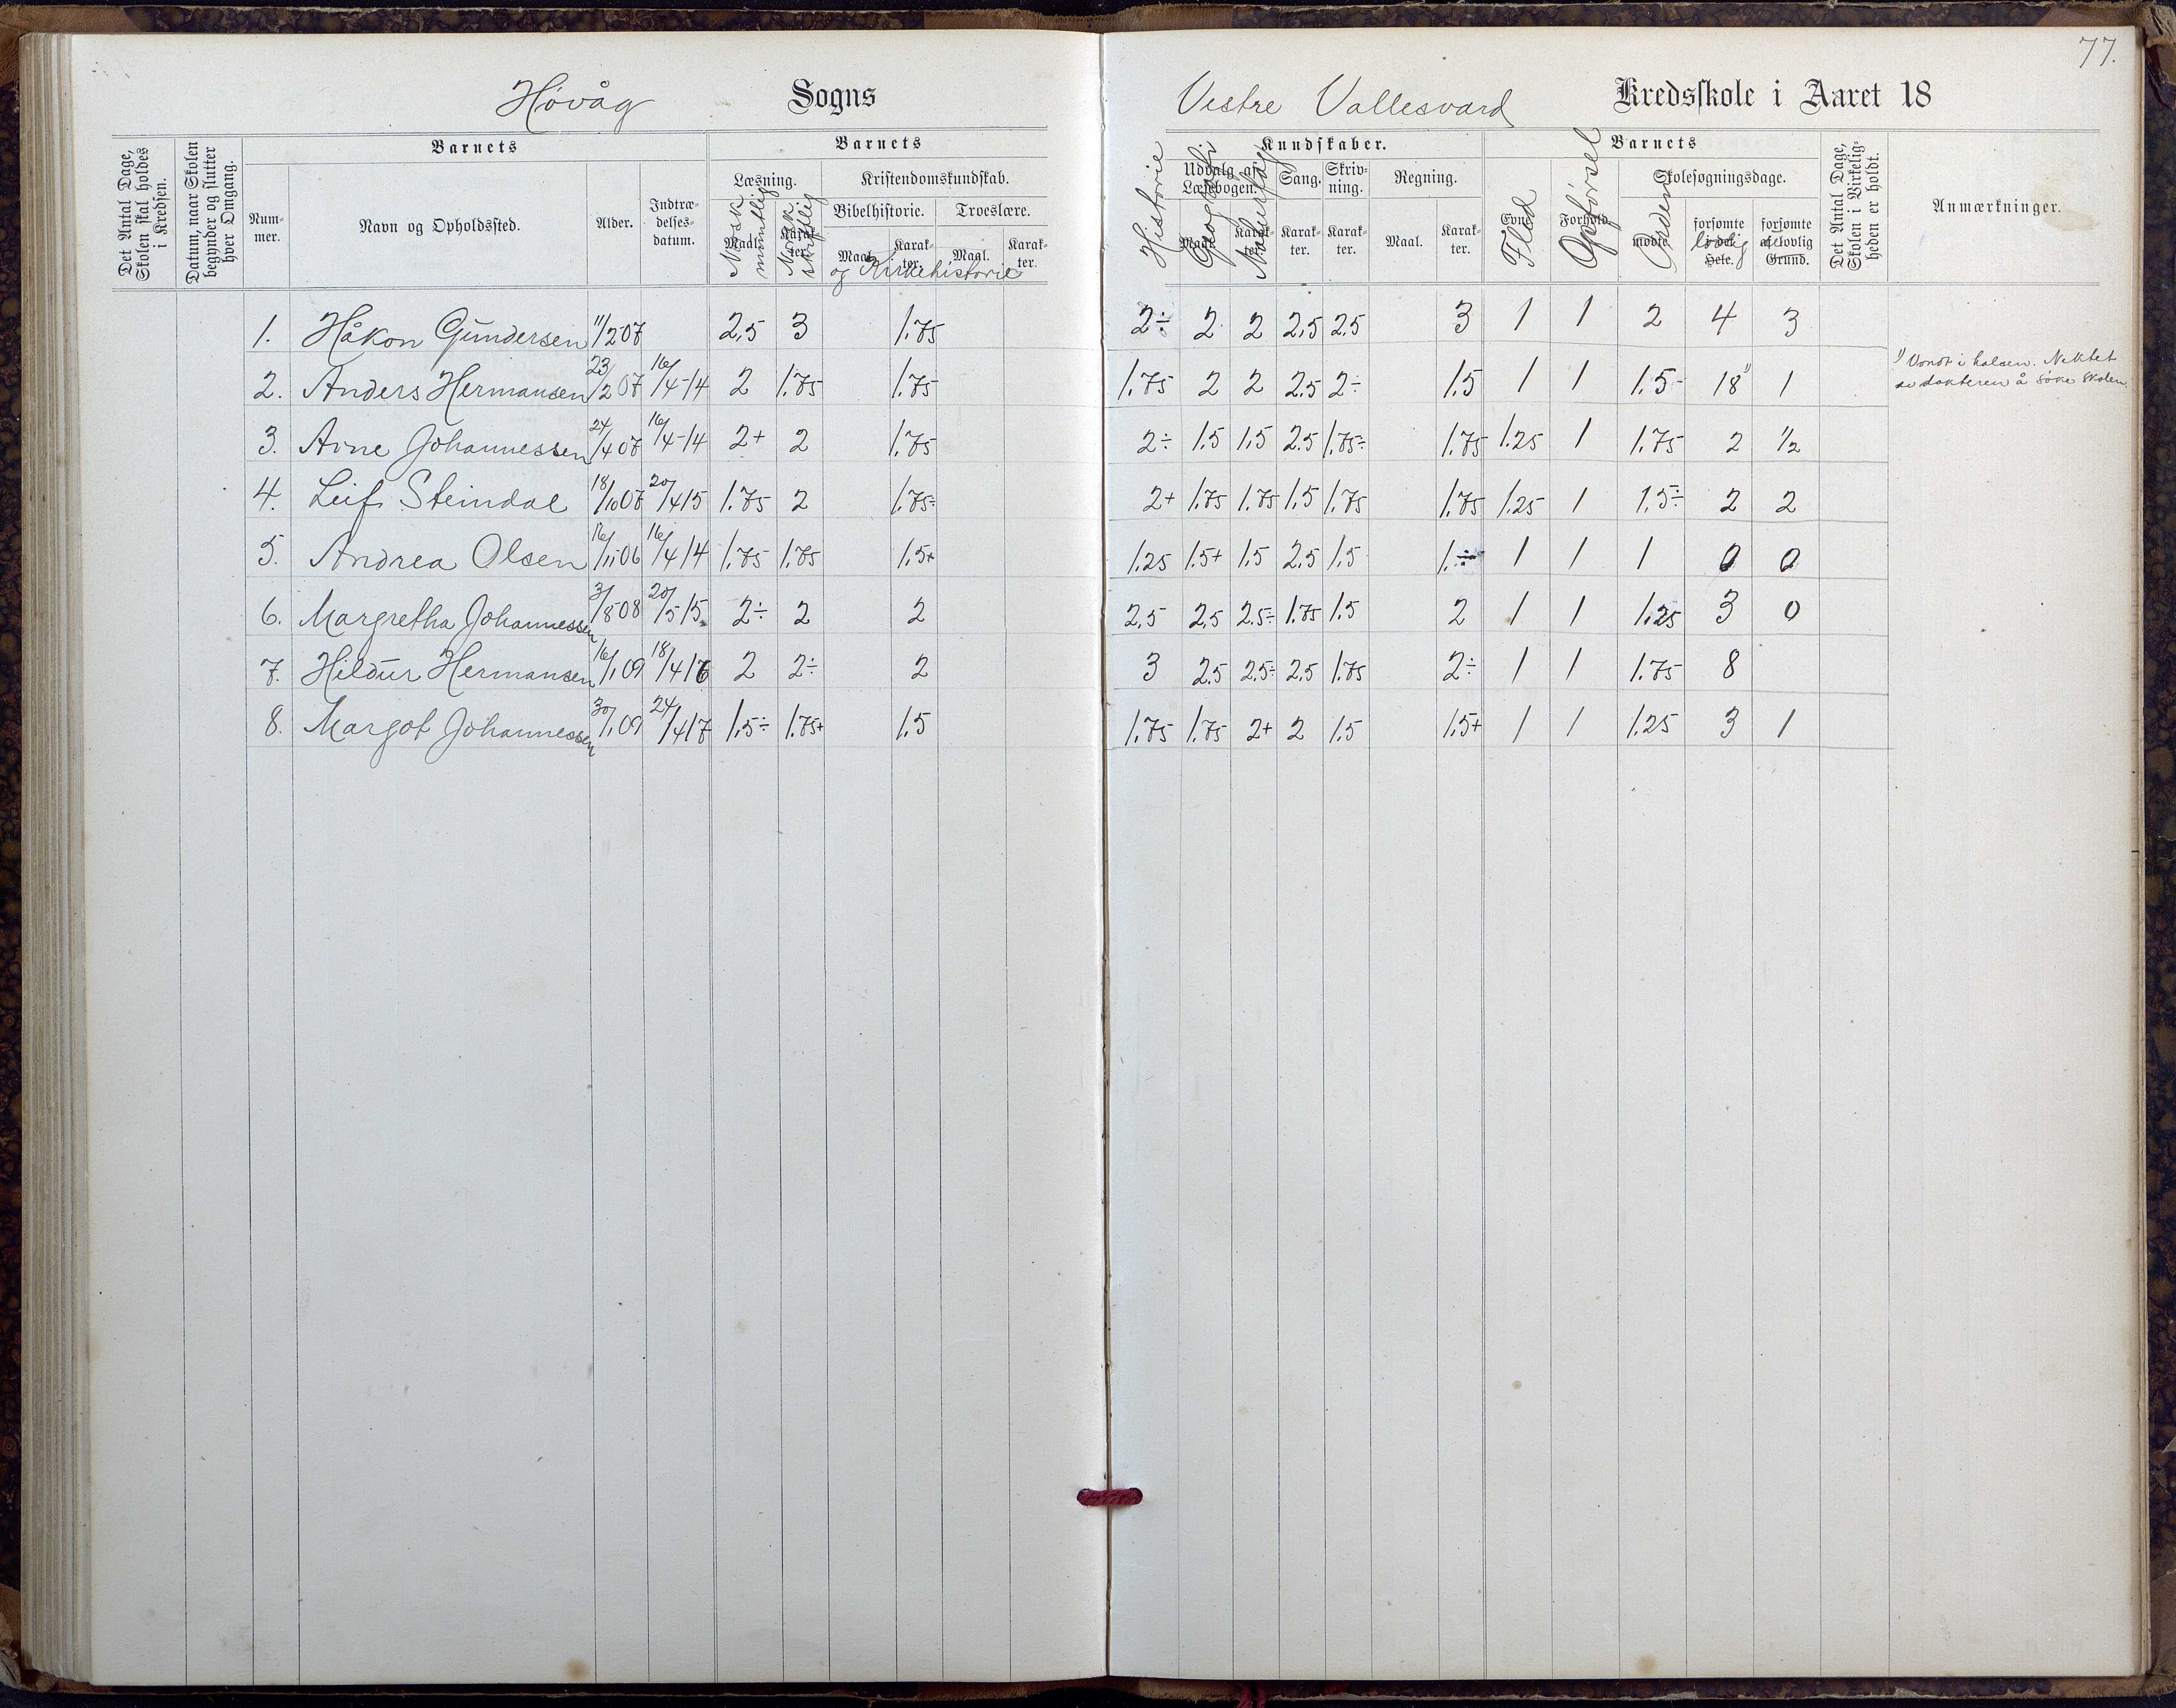 77.
Høvåg Sogns
Vestre Vallesværd Kredsskole i Aaret 18
Det Antal Dage, Skolen skal holdes i Kredsen.
Datum, naar Skolen begynder og slutter hver Omgang.
Barnets
Nummer.
Navn og Opholdssted.
Alder.
Indtrædelsesdatum.
Barnets
Læsning.
Maal. Karakter.
Norsk mundtlig
Norsk skriftlig
Kristendomskundskab.
Bibelhistorie. Troeslære.
Maal. Karakter. Maal. Karakter.
og Kirkehistorie
Historie
Kundskaber.
Udvalg af Læsebogen.
Maal. Karakter.
Geografi
Naturfag
Sang. Karakter.
Skrivning. Karakter.
Regning.
Maal. Karakter.
Barnets
Evne Flid
Forhold Opførsel
Skolesøgningsdage.
mødte Orden
forsømte i det Hele. lovlig
forsømte af lovlig Grund.
Det Antal Dage, Skolen i Virkeligheden er holdt.
Anmærkninger.
1. Håkon Gundersen 11/2 07 2,5 3 1.75 2÷ 2 2 2,5 2.5 3 1 1 2 4 3
2. Anders Hermansen 23/2 07 16/4-14 2 1.75 1.75 1.75 2 2 2.5 2÷ 1.5 1 1 1.5- 18 1) 1 1) Vondt i halsen. Nektet av dokteren å søke skolen.
3. Arne Johannessen 24/4 07 16/4-14 2+ 2 1.75 2÷ 1.5 1.5 2.5 1.75÷ 1.75 1.25 1 1.75 2 1/2
4. Leif Steindal 18/10 07 20/4 15 1.75 2 1.75÷ 2+ 1.75 1.75 1.5 1.75 1.75 1.25 1 1.5÷ 2 2
5. Andrea Olsen 16/11 06 16/4 14 1.75 1.75 1.5+ 1.25 1.5+ 1.5 2.5 1.5 1.÷ 1 1 1 0 0
6. Margretha Johannessen 3/8 08 20/5 15 2÷ 2 2 2.5 2.5 2.5÷ 1.75 1.5 2 1 1 1.25 3 0
7. Hildur Hermansen 16/1 09 18/4 16 2 2÷ 2 3 2.5 2.5÷ 2.5 1.75 2÷ 1 1 1.75 8
8. Margot Johannessen 30/1 09 24/4 17 1.5÷ 1.75+ 1.5 1.75 1.75 2+ 2 1.5 1.5+ 1 1 1.25 3 1